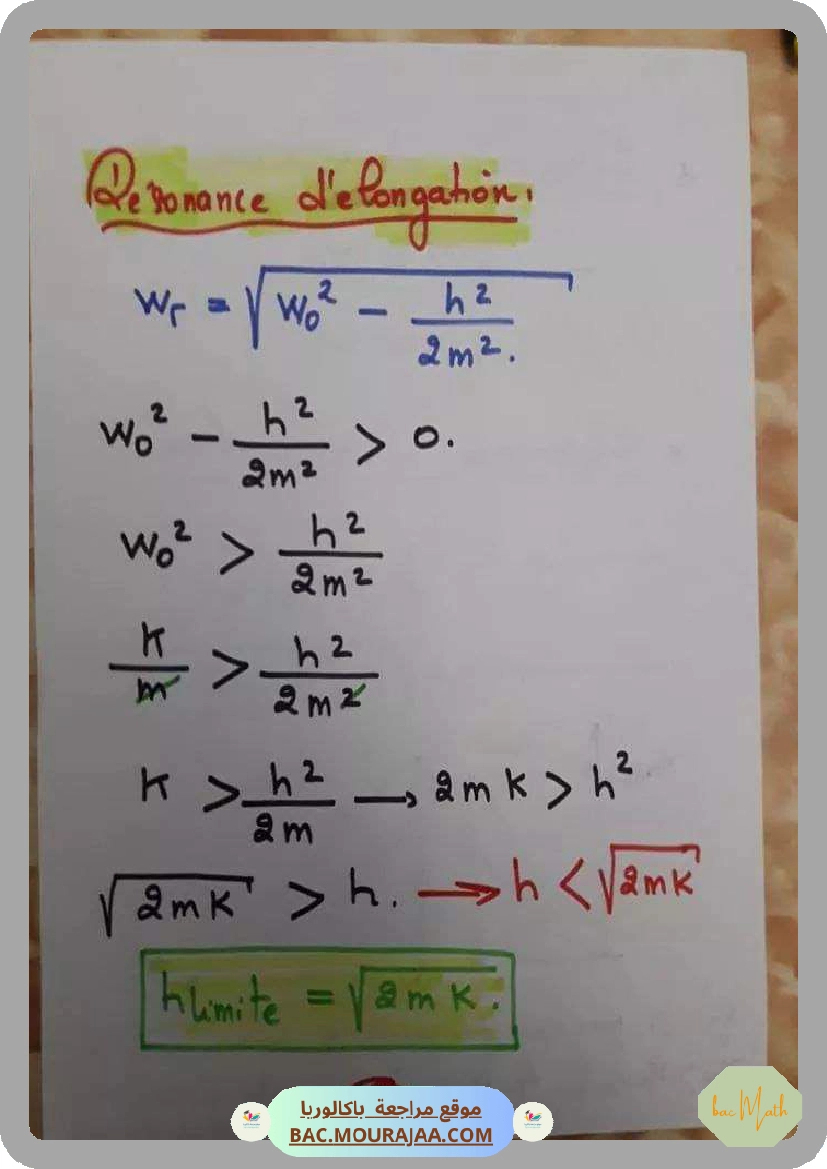 Résonance d'elongation.
Wr = √(W₀² - h²/2m².)
W₀² - h²/2m² > 0.
W₀² > h²/2m²
K/m > h²/2m²
K > h²/2m → 2mK > h²
√(2mK) > h. → h < √(2mK)
hLimite = √(2mK.)
موقع مراجعة باكالوريا
BAC.MOURAJAA.COM
bac Math